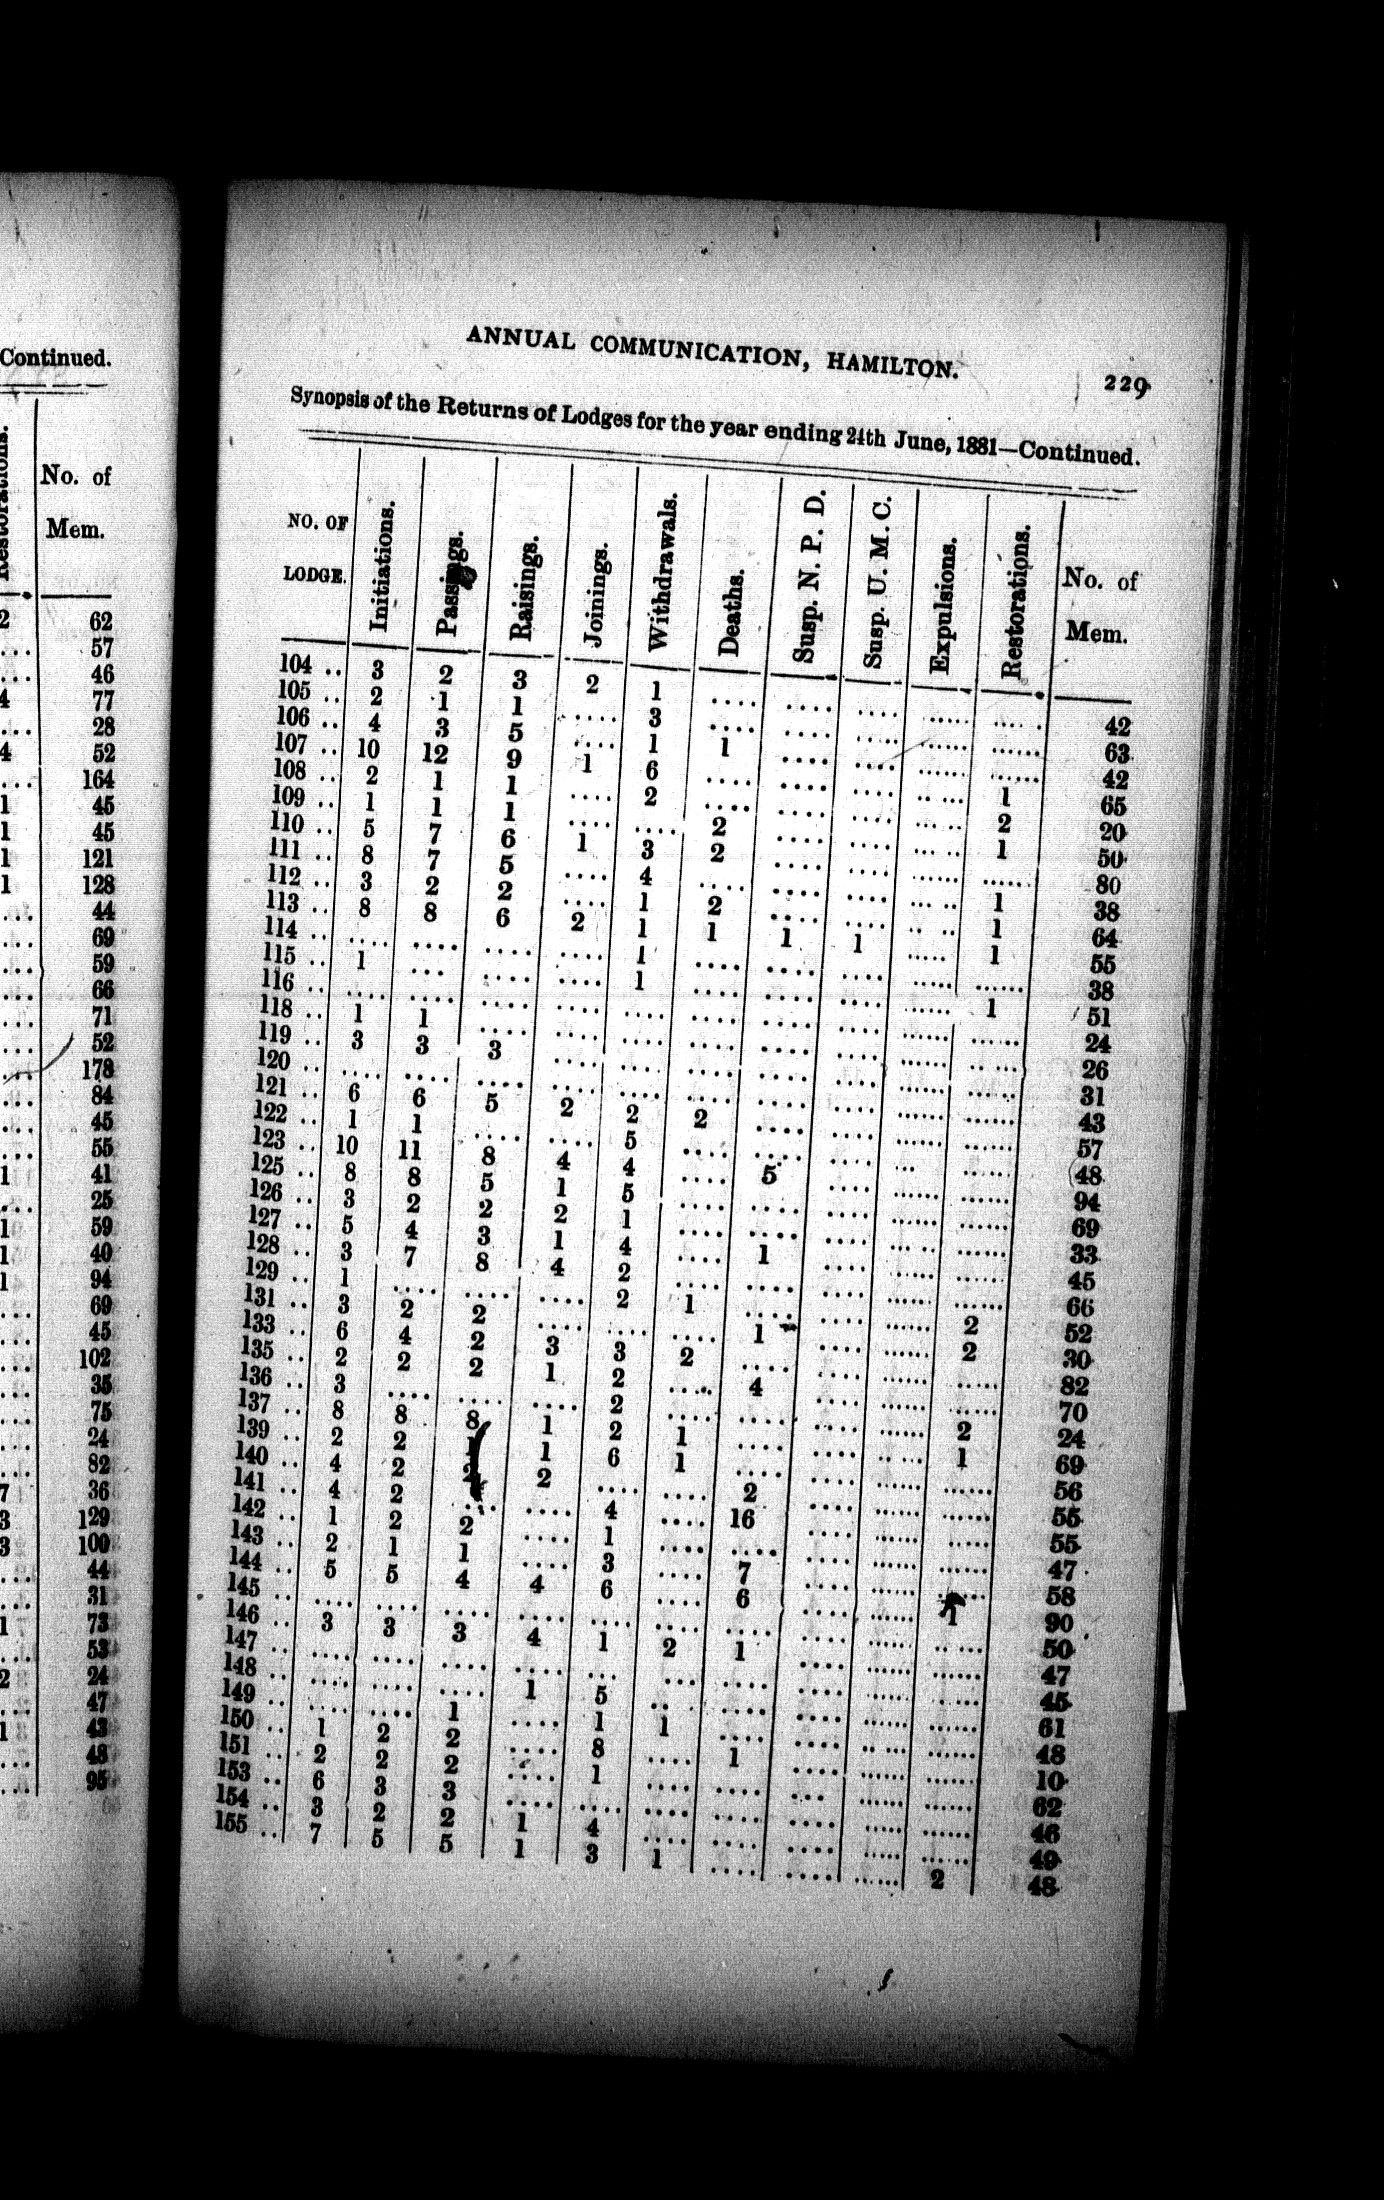 Continued.
No. of
Mem.
62
57
46
77
28
52
164
45
45
121
128
44
69
59
66
71
52
178
84
45
55
41
25
59
40
94
69
45
102
35
75
24
82
36
129
100
44
31
73
53
24
47
43
48
95
ANNUAL COMMUNICATION, HAMILTON. 229
Synopsis of the Returns of Lodges for the year ending 24th June, 1881—Continued.
NO. OF LODGE. Initiations. Passings. Raisings. Joinings. Withdrawals. Deaths. Susp. N. P. D. Susp. U. M. C. Expulsions. Restorations. No. of Mem.
104 .. 3 2 3 2 1 .... .... .... ...... ...... 42
105 .. 2 1 1 .... 3 .... .... .... ...... ...... 63
106 .. 4 3 5 .... 1 1 .... .... ...... ...... 42
107 .. 10 12 9 1 6 .... .... .... ...... 1 65
108 .. 2 1 1 .... 2 .... .... .... ...... 2 20
109 .. 1 1 1 .... .... 2 .... .... ...... 1 50
110 .. 5 7 6 1 3 2 .... .... ...... ...... 80
111 .. 8 7 5 .... 4 .... .... .... ...... 1 38
112 .. 3 2 2 .... 1 2 .... .... ...... 1 64
113 .. 8 8 6 2 1 1 1 1 ...... 1 55
114 .. .... .... .... .... 1 .... .... .... ...... ...... 38
115 .. 1 ... .... .... 1 .... .... .... ...... 1 51
116 .. .... .... .... .... .... .... .... .... ...... ...... 24
118 .. 1 1 .... .... .... .... .... .... ...... ...... 26
119 .. 3 3 3 .... .... .... .... .... ...... ...... 31
120 .. .... .... .... .... .... .... .... .... ...... ...... 43
121 .. 6 6 5 2 2 2 .... .... ...... ...... 57
122 .. 1 1 .... .... 5 .... .... .... ...... ...... 48
123 .. 10 11 8 4 4 .... 5 .... ...... ...... 94
125 .. 8 8 5 1 5 .... .... .... ...... ...... 69
126 .. 3 2 2 2 1 .... .... .... ...... ...... 33
127 .. 5 4 3 1 4 .... 1 .... ...... ...... 45
128 .. 3 7 8 4 2 .... .... .... ...... ...... 66
129 .. 1 .... .... .... 2 1 .... .... ...... 2 52
131 .. 3 2 2 .... .... .... 1 .... ...... 2 30
133 .. 6 4 2 3 3 2 .... .... ...... ...... 82
135 .. 2 2 2 1 2 .... 4 .... ...... ...... 70
136 .. 3 .... .... .... 2 .... .... .... ...... 2 24
137 .. 8 8 8 1 2 1 .... .... ...... 1 69
139 .. 2 2 1 1 6 1 .... .... ...... ...... 56
140 .. 4 2 2 2 .... .... 2 .... ...... ...... 55
141 .. 4 2 .... .... 4 .... 16 .... ...... ...... 55
142 .. 1 2 2 .... 1 .... .... .... ...... ...... 47
143 .. 2 1 1 .... 3 .... 7 .... ...... ...... 58
144 .. 5 5 4 4 6 .... 6 .... ...... 1 90
145 .. .... .... .... .... .... .... .... .... ...... ...... 50
146 .. 3 3 3 4 1 2 1 .... ...... ...... 47
147 .. .... .... .... .... ... ... .... .... ...... ...... 45
148 .. .... .... .... 1 5 .. .... .... ...... ...... 61
149 .. .... .... 1 .... 1 1 .... .... ...... ...... 48
150 .. 1 2 2 .... 8 .... 1 .... ...... ...... 10
151 .. 2 2 2 .... 1 .... .... ... ...... ...... 62
153 .. 6 3 3 .... .... .... .... .... ...... ...... 46
154 .. 3 2 2 1 4 .... .... .... ...... ...... 49
155 .. 7 5 5 1 3 1 .... .... ...... 2 48